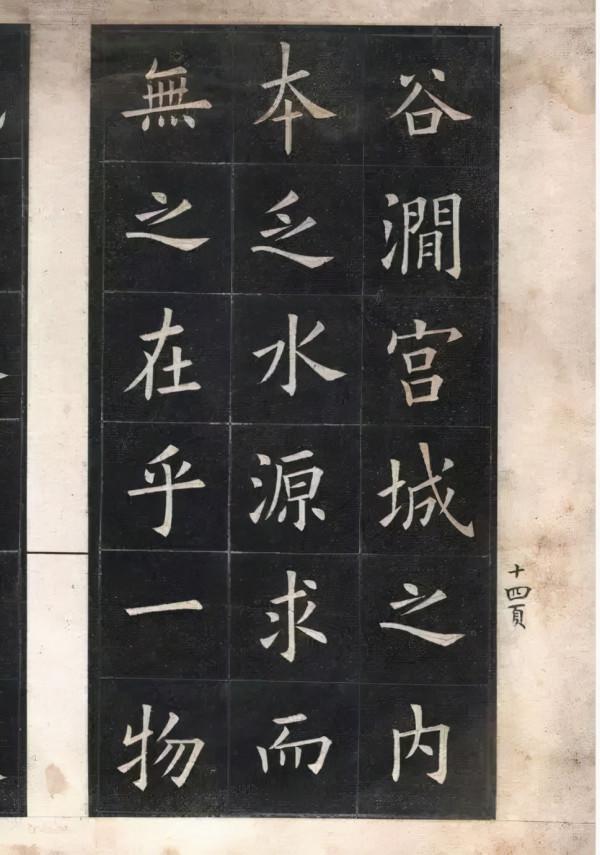 谷澗宫城之内
夲乏水源求而
無之在乎一物
十四頁